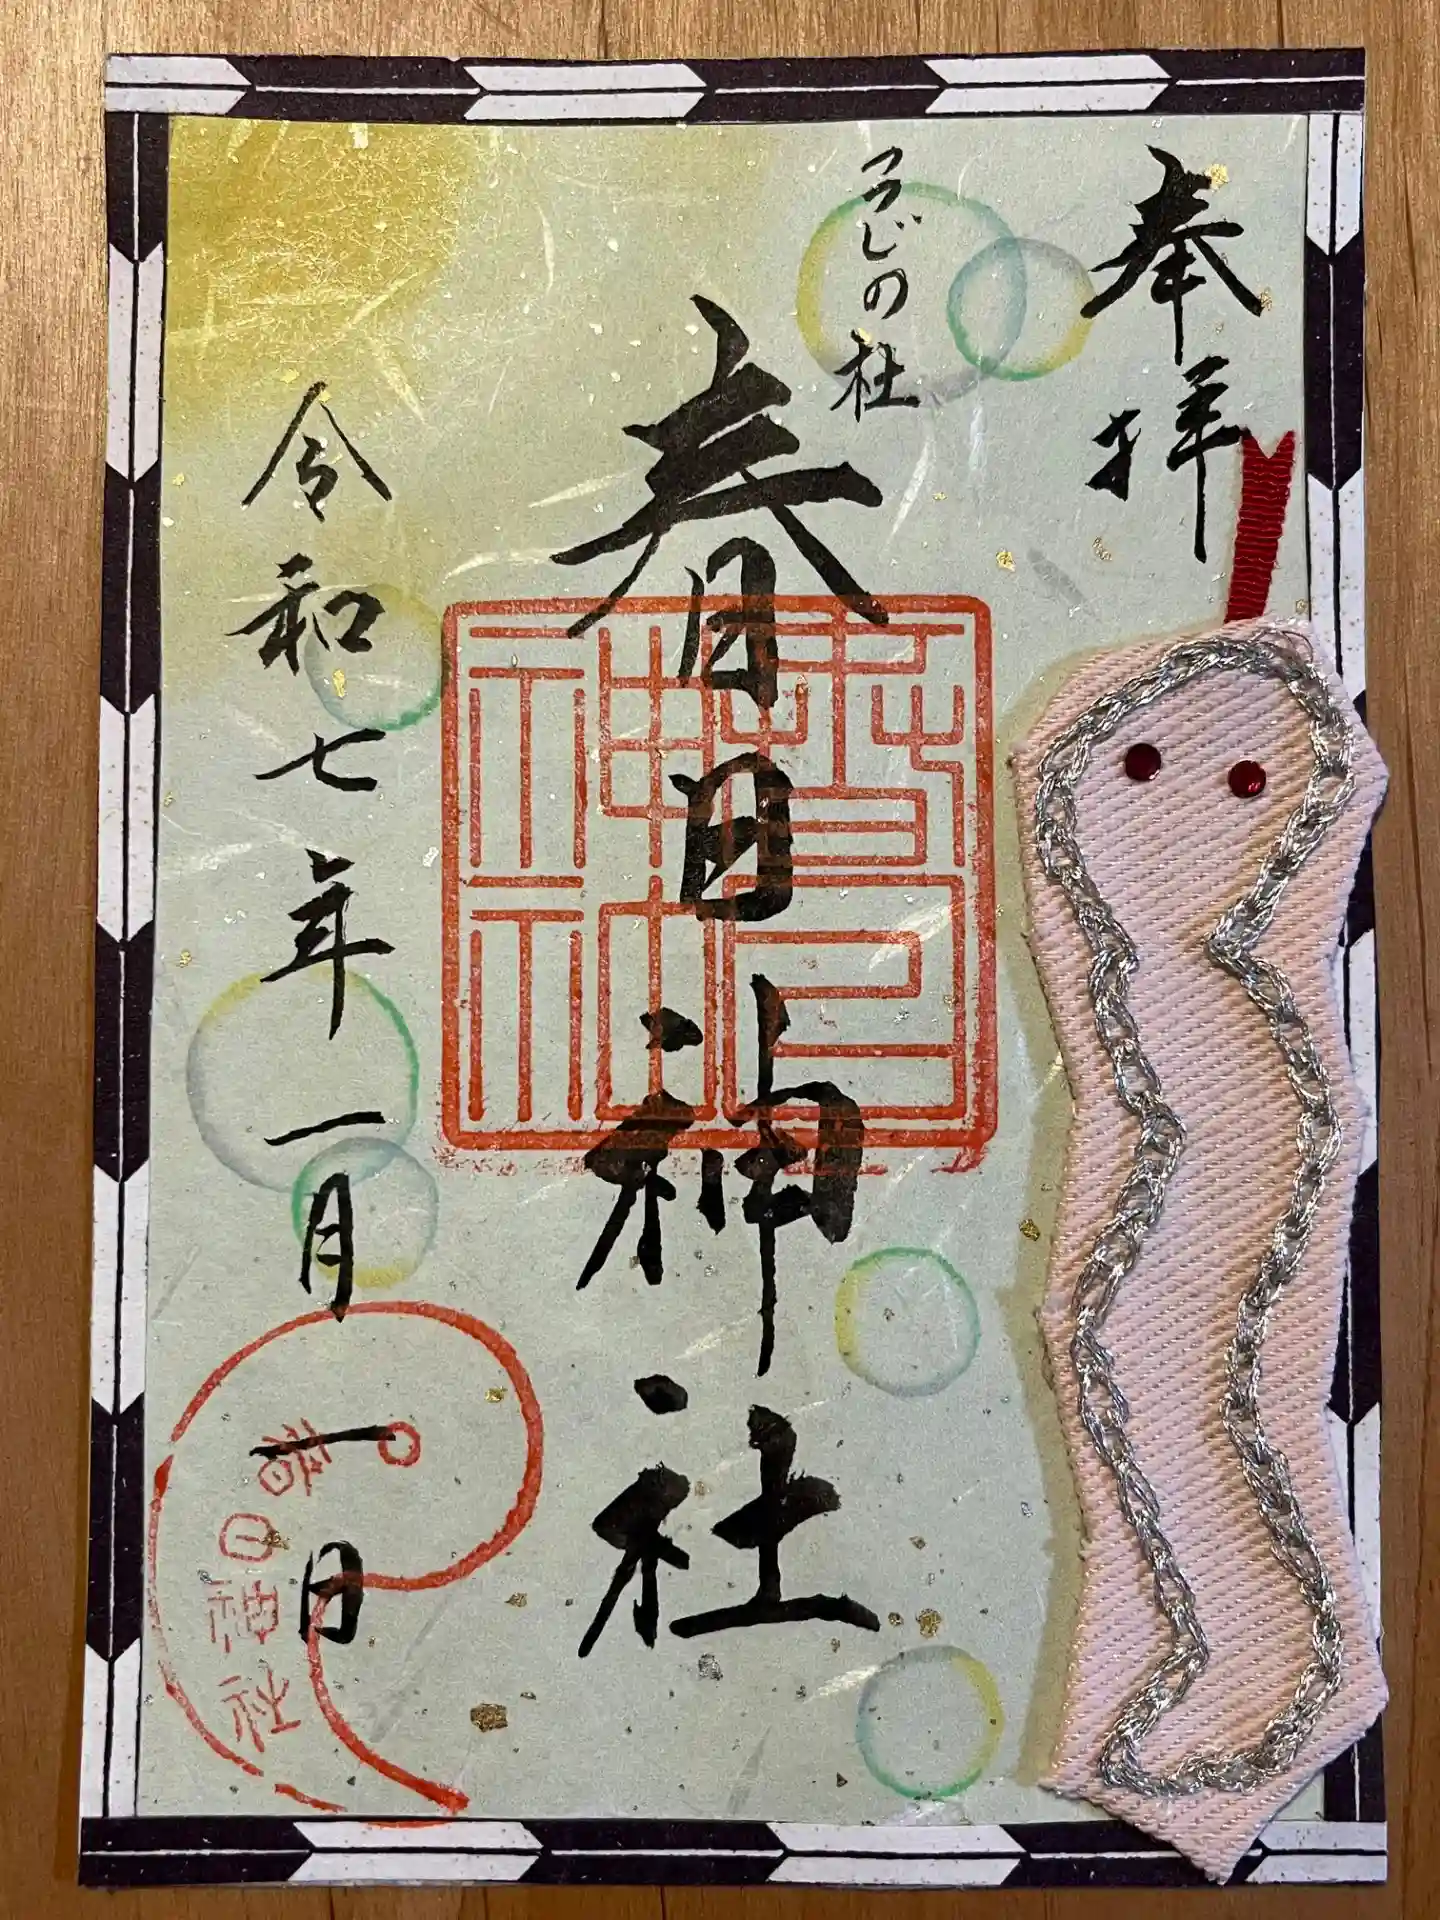 奉拝
ふじの杜
春日神社
令和七年一月一日
春日神社